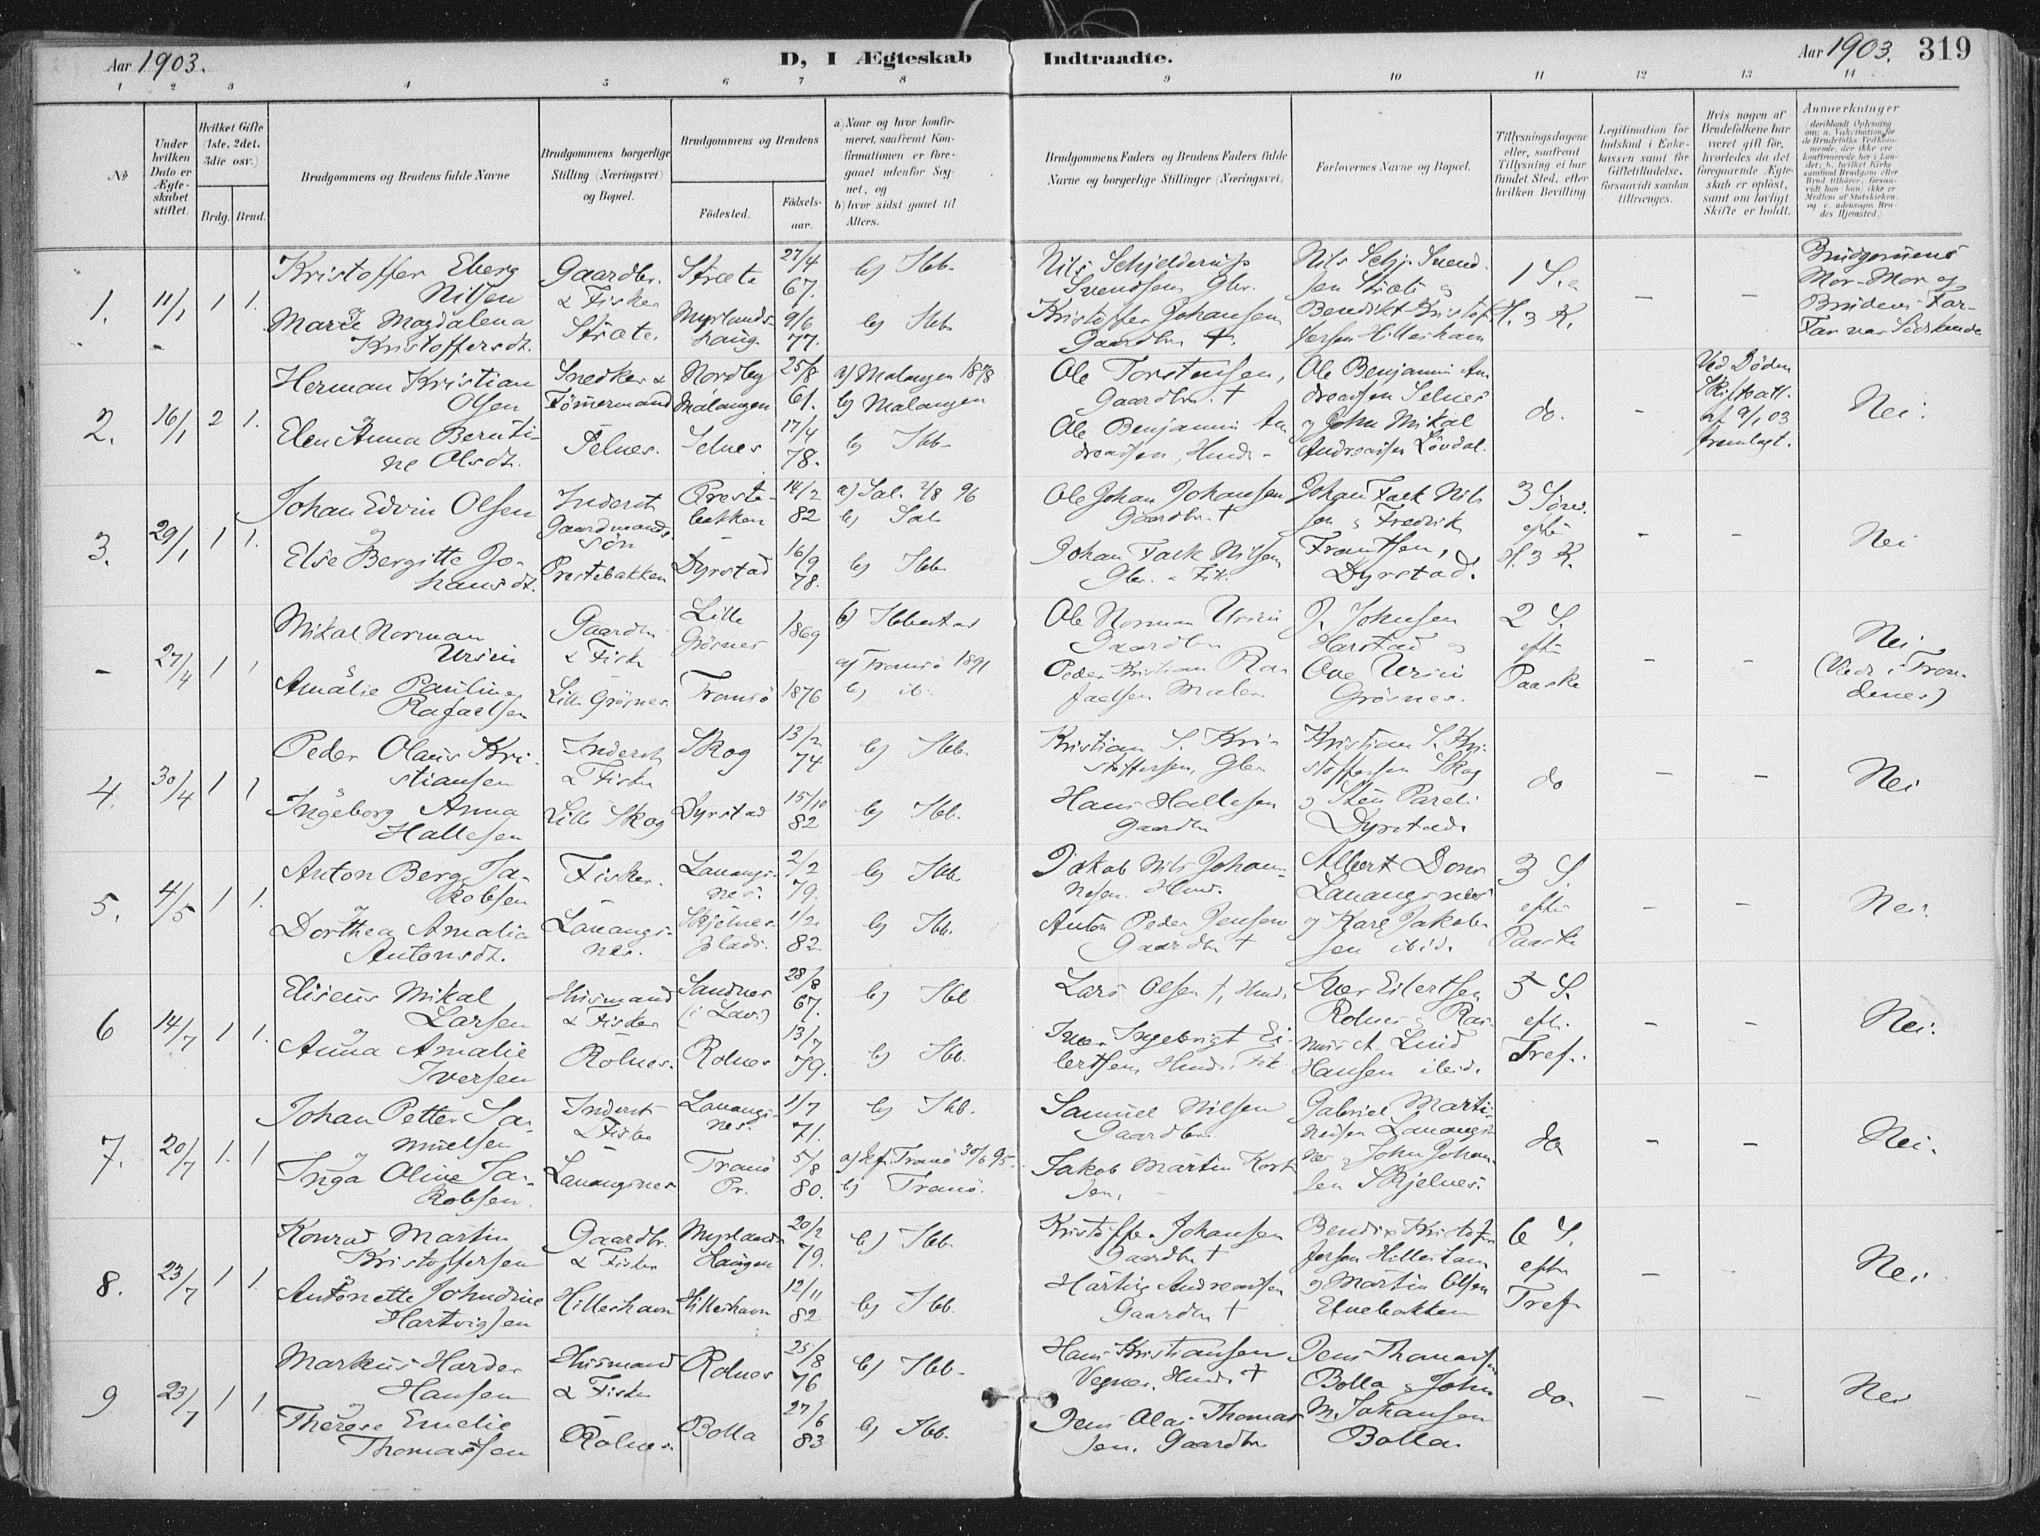 Aar 1903.
D, I Ægteskab
Indtraadte.
Aar 1903.
319
1 2 3 4 5 6 7 8 9 10 11 12 13 14
No
Under hvilken Dato er Ægteskabet stiftet.
Hvilket Gifte (1ste, 2det, 3die osv.)
Brdg. Brud.
Brudgommens og Brudens fulde Navne
Brudgommens borgerlige Stilling (Næringsvei) og Bopæl.
Brudgommens og Brudens
Fødested.
Fødselsaar.
a) Naar og hvor konfirmeret, saafremt Konfirmationen er foregaaet udenfor Sognet, og
b) hvor sidst gaaet til Alters.
Brudgommens Faders og Brudens Faders fulde Navne og borgerlige Stillinger (Næringsvei)
Forlovernes Navne og Bopæl.
Tillysningsdagene eller, saafremt Tillysning ei har fundet Sted, efter hvilken Bevilling.
Legitimation for Indskud i Enkekassen samt for Giftetilladelse, forsaavidt saadan tiltrænges.
Hvis nogen af Brudefolkene har været gift før, hvorledes da det foregaaende Ægteskab er opløst, samt om lovligt Skifte er holdt.
Anmerkninger
1. 11/1 1 1.
Kristoffer Eberg Nilsen
Gaardbr. & Fisker
Stræte
27/4 67.
b) Ibb.
Nils Schjelderup Svendsen Gbr.
Nils Schj. Svendsen Stræte og
1 S. e
Brudgommens Mor-Mor og
Marie Magdalena Kristoffersdt.
Stræte.
Myrlandshaug
9/6 77.
b) Ibb
Kristoffer Johansen Gaardbr †.
Benedikt Kristoffersen Hilleshavn
H. 3 K.
Brudens Far-Far var Södskende
2. 16/1 2 1.
Herman Kristian Olsen
Snedker & Tømmermand
Nordby Malangen
25/8 61.
a) Malangen 1878
b) Malangen
Ole Torstensen, Gaardbr. †
Ole Benjamin Andreassen Selnes
do.
Ved Döden Skifteatt. af 9/1 03 fremlagt.
Nei.
Elen Anna Berntine Olsdt.
Selnes.
Selnes
17/4 78.
b) Ibb-
Ole Benjamin Andreassen, Husm-
og John Mikal Andreassen Lövdal.
3. 29/1 1 1.
Johan Edvin Olsen
Inderst Gaardmands sön
Prestebakken
14/2 82
a) Sal. 2/8 96
b) Sal
Ole Johan Johansen Gaardbr. †
Johan Falk Nilsen & Fredrik
3 Sönd. efter
Nei
Else Bergitte Johansdt.
Prestebakken
Dyrstad
16/9 78.
b) Ibb.
Johan Falk Nilsen Gbr. & Fisk.
Frantsen, Dyrstad.
H. 3 K.
- 27/4 1 1
Mikal Norman Ursin
Gaardbr & Fisker
Lille Grøsnes
1869
b) Ibbestad
Ole Norman Ursin Gaardbr
J. Johnsen Harstad og
2 S. efter Paaske
Nei (Viede i Trondenes)
Amalie Pauline Rafaelsen
Lille Grøsnes.
Tromsö
1876
a) Tromsö 1891
b) ib.
Peder Kristian Rafaelsen Maler
Ove Ursin Grösnes.
4. 30/4 1 1
Peder Olaus Kristiansen
Inderst & Fisker
Skog
13/2 74
b) Ibb.
Kristian S. Kristoffersen, Gbr
Kristian S. Kristoffersen Skog
do
Nei
Ingeborg Anna Hallesen
Lille Skog
Dyrstad
15/10 82
b) Ibb.
Hans Hallesen Gaardbr
Dyrstad.
5. 4/5 1 1.
Anton Berg Jakobsen
Fisker.
Lauangsnes.
2/2 79.
b) Ibb.
Jakob Nils Johannesen Husm.
Albert Dons Lauangsnes
3 S. efter Paaske
Nei.
Dorthea Amalia Antonsdt.
Lauangsnes.
Skjelnesplads.
1/2 82.
b) Ibb.
Anton Peder Jensen Gaardbr †
og Karl Jakobsen ibid.
6 14/7 1 1.
Eliseus Mikal Larsen
Husmand & Fisker
Sandnes (i Lav.)
28/8 67.
b) Ibb
Lars Olsen †, Husm.
Iver Eilertsen Rolnes & Ras-
5 S. eft. Tref.
Nei.
Anna Amalie Iversen
Rolnes.
Rolnes
13/7 79.
b) Ibb.
Iver Ingebrigt Eilertsen Husm. Fisk
mus A. Lind Hansen ibid.
7. 20/7 1. 1
Johan Petter Samuelsen
Inderst & Fisker
Lauangsnes.
1/7 71.
b) Ibb.
Samuel Nilsen Gaardbr.
Gabriel Martinsen Lauangsnes
do
Nei.
Inga Oline Jakobsen.
Lauangsnes
Tranö Pr.
5/8 80.
a) kf. Tranö 30/6 95.
b) Tranö.
Jakob Martin Kortsen,
& John Johansen Skjelnes.
8. 23/7 1 1.
Konrad Martin Kristoffersen
Gaardbr. & Fisker
Myrlandshaugen
20/2 79.
b) Ibb.
Kristoffer Johansen Gaardbr †
Bendix Kristoffersen Hilleshavn
6 S. efter Tref.
Nei
Antonette Johndine Hartvigsen
Hilleshavn
Hilleshavn
12/11 82
b) Ibb.
Hartvig Andreassen Gaardbr †
og Martin Olsen Elvebakken
9 23/7 1 1.
Markus Harder Hansen
Husmand & Fisker
Rolnes
25/8 76
b) Ibb-
Hans Kristiansen Vegnes. Husm. †
Jens Thomassen Bolla & John
do.
Nei
Therese Emelie Thomassen
Rolnes.
Bolla
27/6 83
b) Ibb.
Jens Olai Thomassen. Gaardbr
M. Johansen Bolla.